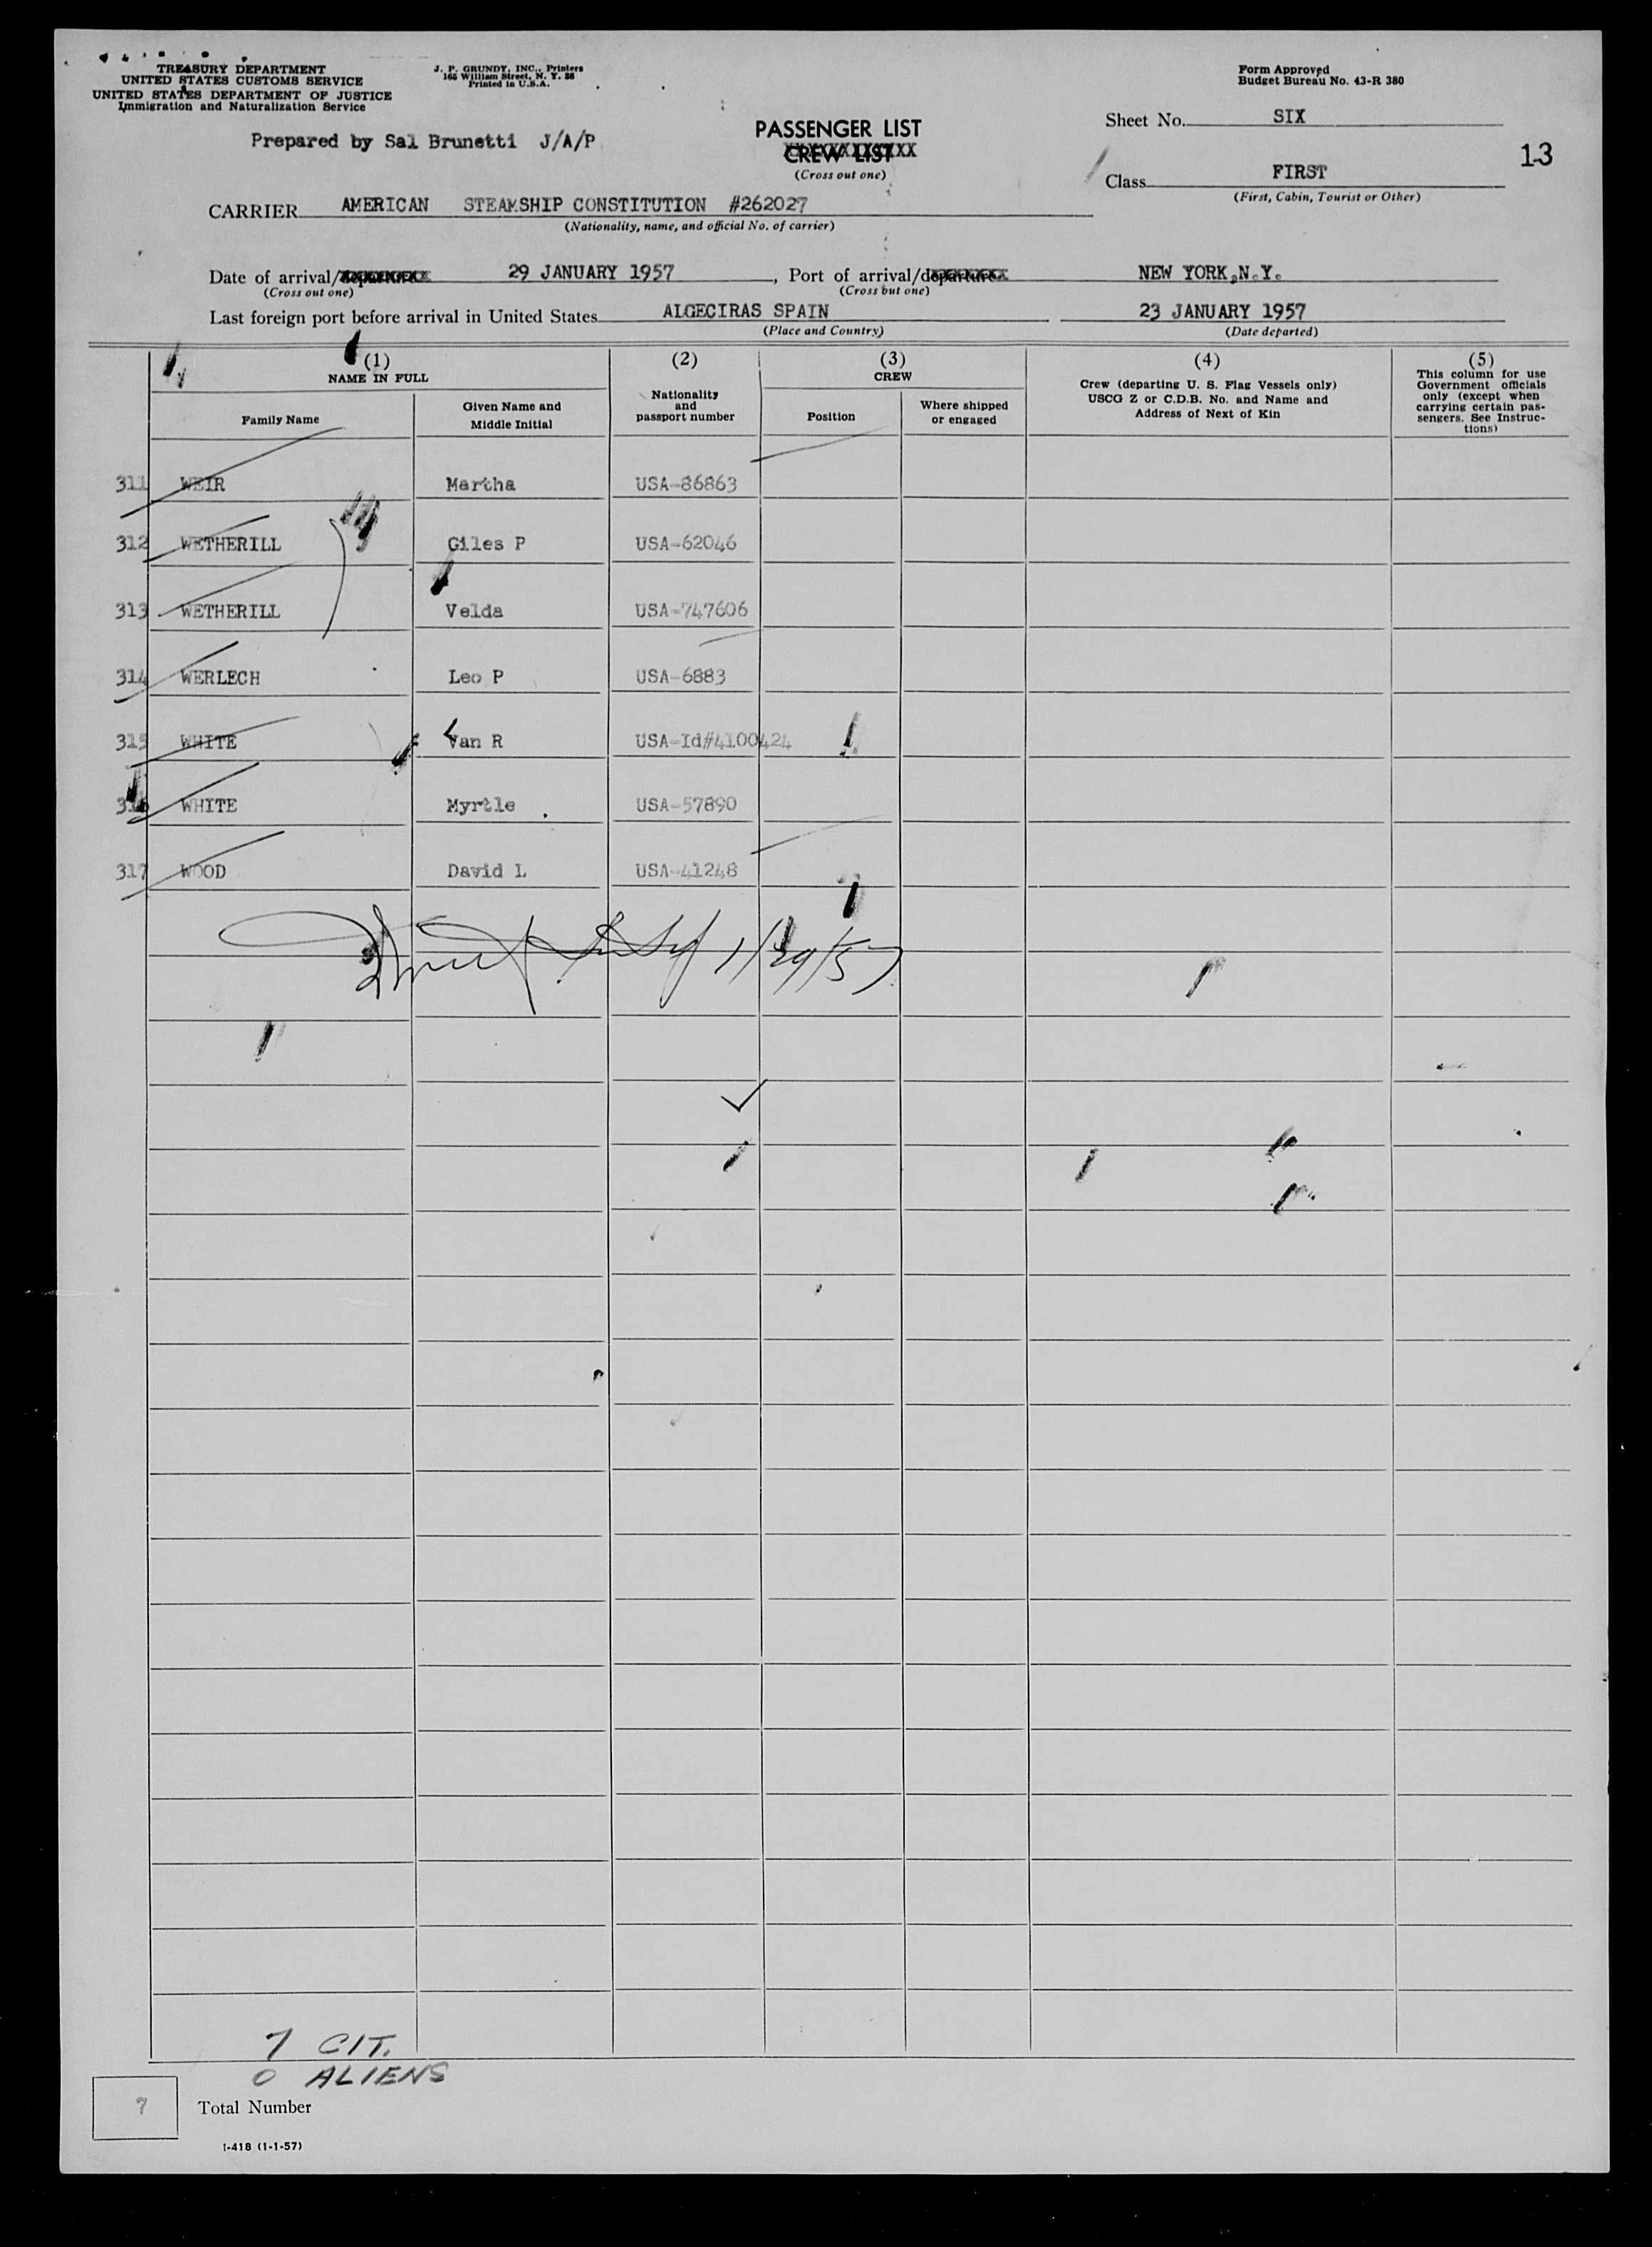 TREASURY DEPARTMENT
UNITED STATES CUSTOMS SERVICE
UNITED STATES DEPARTMENT OF JUSTICE
Immigration and Naturalization Service
J. P. GRUNDY, INC., Printers
165 William Street, N. Y. 38
Printed in U.S.A.
Form Approved
Budget Bureau No. 43-R 380
Prepared by Sal Brunetti J/A/P
PASSENGER LIST
CREW LIST
(Cross out one)
Sheet No. SIX
13
Class FIRST
(First, Cabin, Tourist or Other)
CARRIER AMERICAN STEAMSHIP CONSTITUTION #262027
(Nationality, name, and official No. of carrier)
Date of arrival/departure 29 JANUARY 1957, Port of arrival/departure NEW YORK,N.Y.
(Cross out one) (Cross out one)
Last foreign port before arrival in United States ALGECIRAS SPAIN 23 JANUARY 1957
(Place and Country) (Date departed)
(1) (2) (3) (4) (5)
NAME IN FULL
Family Name
Given Name and
Middle Initial
Nationality
and
passport number
CREW
Position
Where shipped
or engaged
Crew (departing U. S. Flag Vessels only)
USCG Z or C.D.B. No. and Name and
Address of Next of Kin
This column for use
Government officials
only (except when
carrying certain pas-
sengers. See Instruc-
tions)
311 WEIR Martha USA-86863
312 WETHERILL Giles P USA-62046
313 WETHERILL Velda USA-747606
314 WERLECH Leo P USA-6883
315 WHITE Van R USA-Id#4100424
316 WHITE Myrtle USA-57890
317 WOOD David L USA-41248
1/29/57
7 CIT.
0 ALIENS
7 Total Number
I-418 (1-1-57)